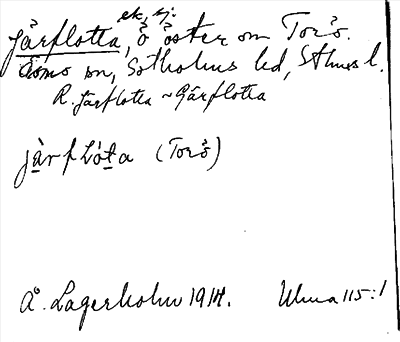 ek, sj:
Jårflotta, ö öster om Torö.
Ösmo sn, Sotholms hd, Sthms l.
R. Järflotta ~ Gårflotta
jàrflót̲a (Torö)
Å. Lagerholm 1914. Ulma 115:1